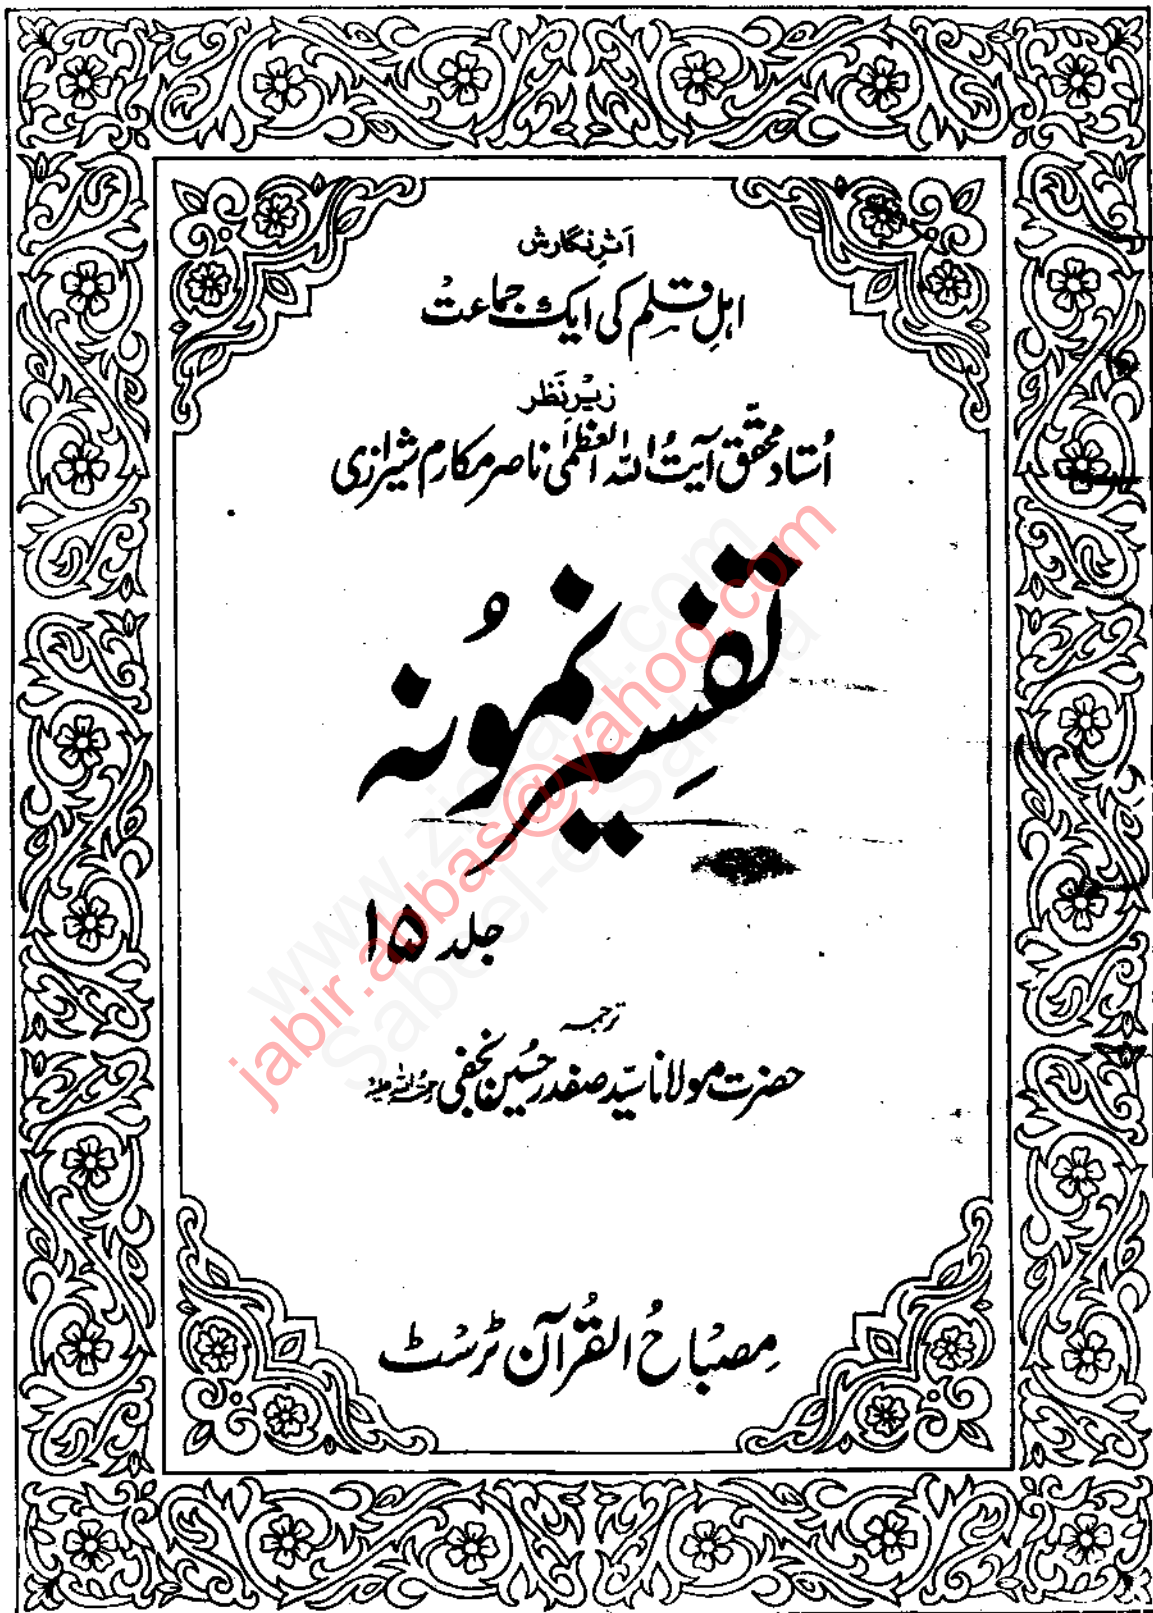 اَثرِ نگارش
اہلِ قلم کی ایک جماعت
زیرِ نَظر
اُستاد محقّق آیت اللہ العظمٰی ناصر مکارم شیرازی
تفسِیر نمُونہ
جلد ۱۵
ترجمہ
حضرت مولانا سیّد صفدر حُسین نجفی رحمۃ اللہ علیہ
مِصْبَاحُ القُرآن ٹرسْٹ
www.ziaraat.com
jabir.abbas@yahoo.com
Sabeel-e-Sakina